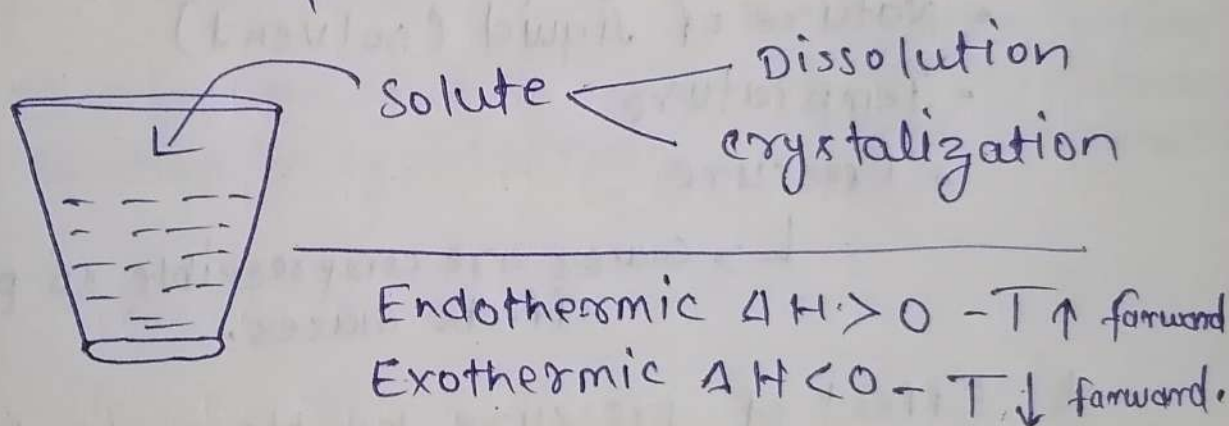 Solute
Dissolution
crystalization
Endothermic ΔH > 0 - T ↑ farward
Exothermic ΔH < 0 - T ↓ farward.